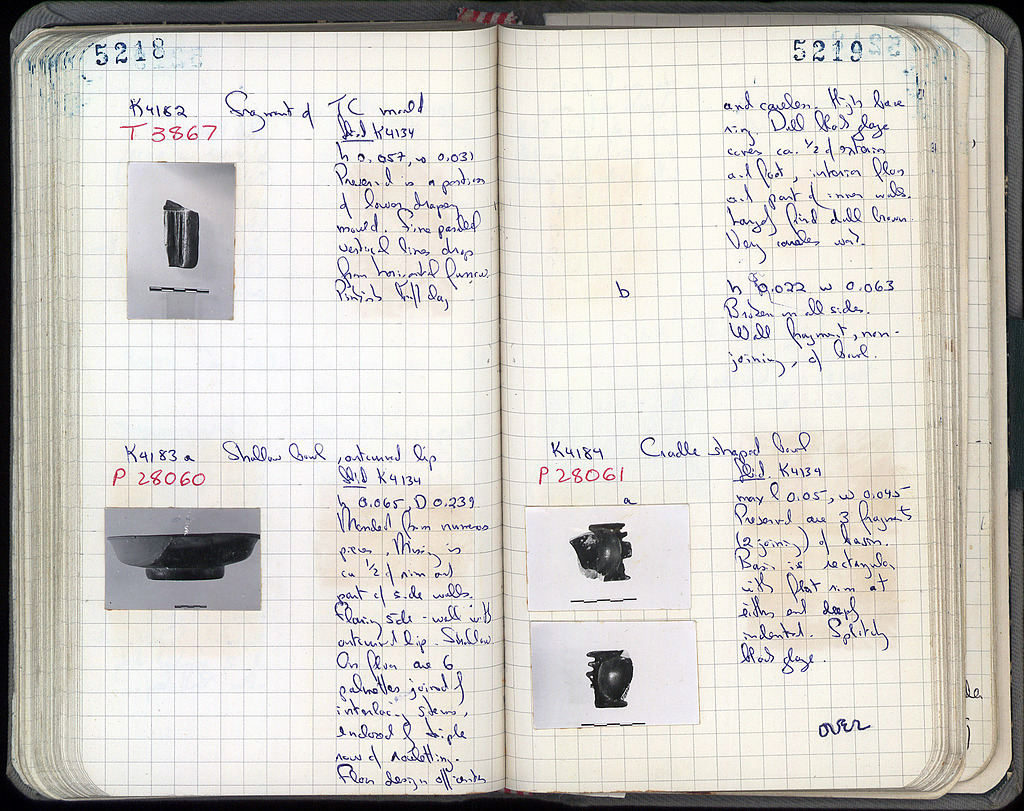 5218
K4182 Fragment of TC mould
T 3867
Ibid K4134
h 0.057, w 0.031
Preserved is a portion
of lower drapery
mould. Fine parallel
vertical lines drop
from horizontal furrow.
Pinkish buff clay
K4183 a Shallow bowl, outturned lip
P 28060
Ibid K4134
h 0.065, D 0.239
Mended from numerous
pieces. Missing is
ca 1/2 of rim and
part of side walls.
Flaring side-wall with
outturned lip. Shallow
On floor are 6
palmettes joined by
interlacing stems,
enclosed by triple
row of rouletting.
Floor design off center
5219
and careless. High base
ring. Dull black glaze
covers ca. 1/2 of exterior
and foot, interior floor
and part of inner walls.
fired dull brown.
Very careless work.
b h 0.022 w 0.063
Broken on all sides.
Wall fragment, non-
joining, of bowl.
K4184 Cradle shaped bowl
P 28061
Ibid. K4134
a
max l 0.05, w 0.045
Preserved are 3 fragments
(2 joining) of basin.
Basin is rectangular
with flat rim at
either end deeply
indented. Splotchy
black glaze.
OVER